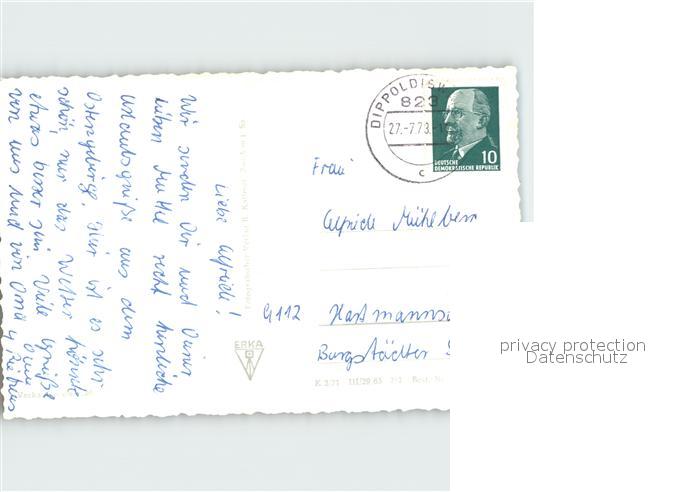 Liebe Elfriede!
Wir senden Dir und Deiner
lieben Mutti recht herzliche
Urlaubsgrüße aus dem
Osterzgebirge. Hier ist es sehr
schön, nur das Wetter könnte
etwas besser sein. Viele Grüße
von uns und von Oma
ERKA
K 2/71 III/29 65
DIPPOLDISW
823
27.-7.73.-1
c
10
DEUTSCHE
DEMOKRATISCHE REPUBLIK
Frau
Elfriede Mühlberg
9112 Hartmannsd
Burgstädter S
privacy protection
Datenschutz